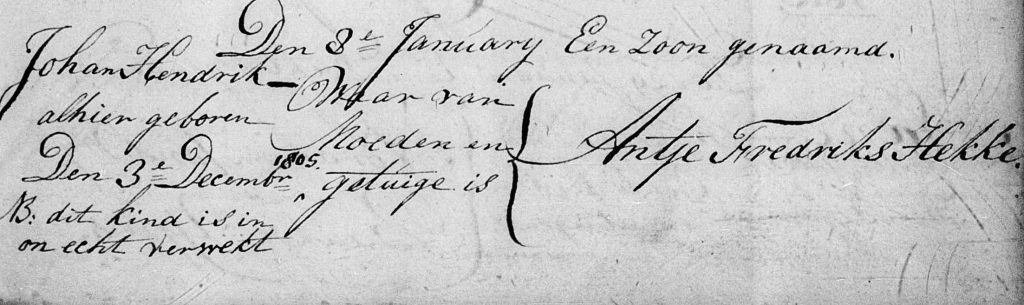 Den 8e January Een Zoon genaamd.
Johan Hendrik
alhier geboren
Den 3e Decembr 1805.
NB: dit kind is in
on echt verwekt
Waar van
Moeder en
getuige is
Antje Fredriks Hekke.